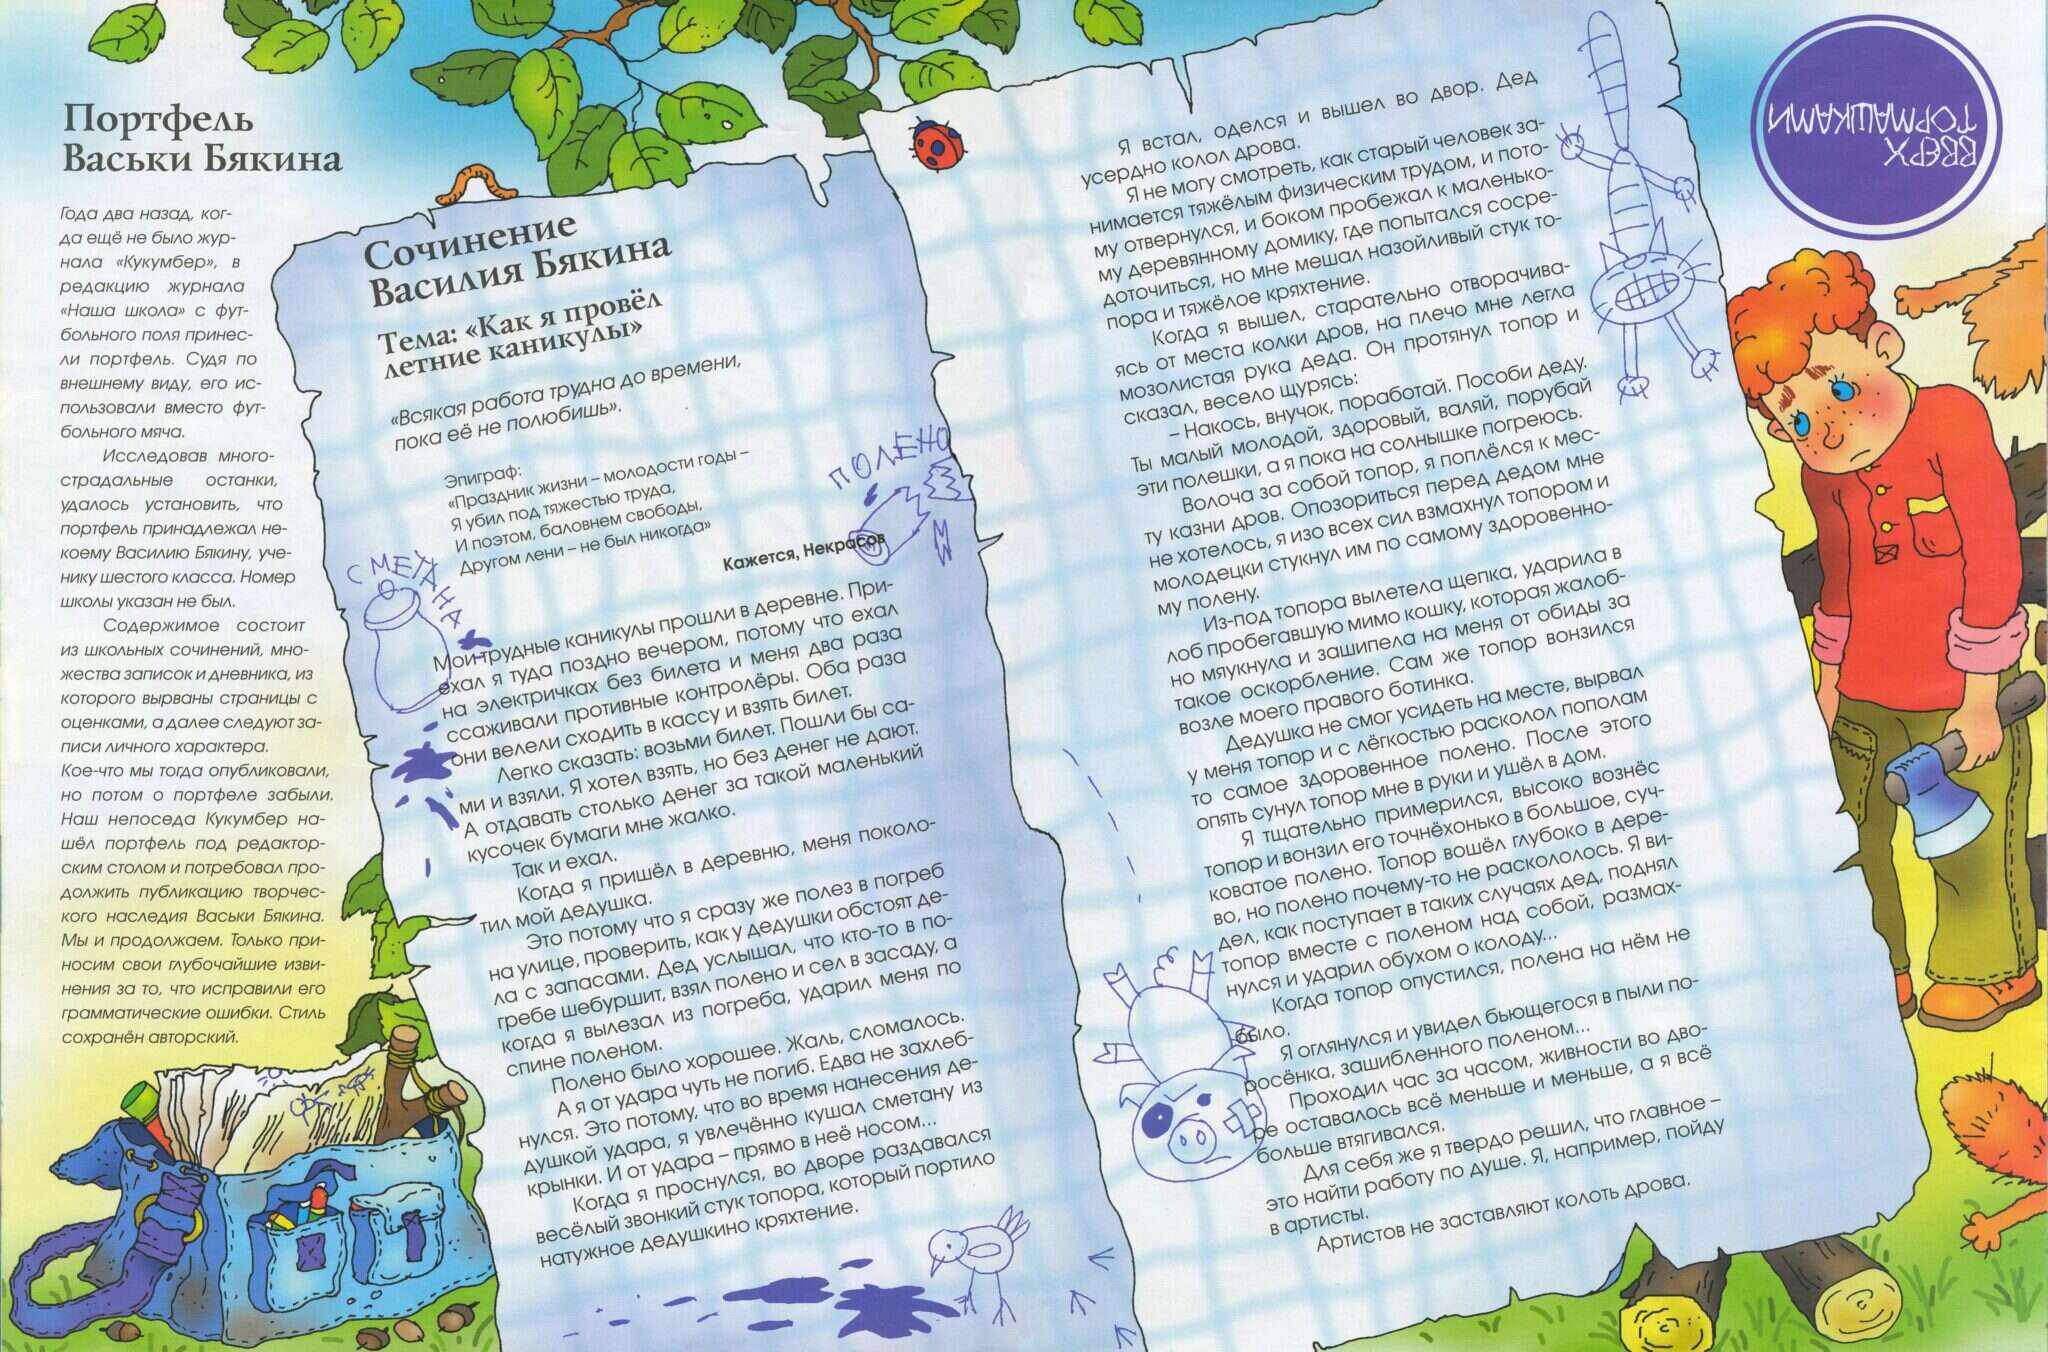 Портфель
Васьки Бякина
Года два назад, ког-
да ещё не было жур-
нала «Кукумбер», в
редакцию журнала
«Наша школа» с фут-
больного поля принес-
ли портфель. Судя по
внешнему виду, его ис-
пользовали вместо фут-
больного мяча.
Исследовав много-
страдальные останки,
удалось установить, что
портфель принадлежал не-
коему Василию Бякину, уче-
нику шестого класса. Номер
школы указан не был.
Содержимое состоит
из школьных сочинений, мно-
жества записок и дневника, из
которого вырваны страницы с
оценками, а далее следуют за-
писи личного характера.
Кое-что мы тогда опубликовали,
но потом о портфеле забыли.
Наш непоседа Кукумбер на-
шёл портфель под редактор-
ским столом и потребовал про-
должить публикацию творчес-
кого наследия Васьки Бякина.
Мы и продолжаем. Только при-
носим свои глубочайшие изви-
нения за то, что исправили его
грамматические ошибки. Стиль
сохранён авторский.
Сочинение
Василия Бякина
Тема: «Как я провёл
летние каникулы»
«Всякая работа трудна до времени,
пока её не полюбишь».
Эпиграф:
«Праздник жизни – молодости годы –
Я убил под тяжестью труда,
И поэтом, баловнем свободы,
Другом лени – не был никогда»
Кажется, Некрасов
ПОЛЕНО
СМЕТАНА
Мои трудные каникулы прошли в деревне. При-
ехал я туда поздно вечером, потому что ехал
на электричках без билета и меня два раза
ссаживали противные контролёры. Оба раза
они велели сходить в кассу и взять билет.
Легко сказать: возьми билет. Пошли бы са-
ми и взяли. Я хотел взять, но без денег не дают.
А отдавать столько денег за такой маленький
кусочек бумаги мне жалко.
Так и ехал.
Когда я пришёл в деревню, меня поколо-
тил мой дедушка.
Это потому что я сразу же полез в погреб
на улице, проверить, как у дедушки обстоят де-
ла с запасами. Дед услышал, что кто-то в по-
гребе шебуршит, взял полено и сел в засаду, а
когда я вылезал из погреба, ударил меня по
спине поленом.
Полено было хорошее. Жаль, сломалось.
А я от удара чуть не погиб. Едва не захлеб-
нулся. Это потому, что во время нанесения де-
душкой удара, я увлечённо кушал сметану из
крынки. И от удара – прямо в неё носом...
Когда я проснулся, во дворе раздавался
весёлый звонкий стук топора, который портило
натужное дедушкино кряхтение.
Я встал, оделся и вышел во двор. Дед
усердно колол дрова.
Я не могу смотреть, как старый человек за-
нимается тяжёлым физическим трудом, и пото-
му отвернулся, и боком пробежал к маленько-
му деревянному домику, где попытался сосре-
доточиться, но мне мешал назойливый стук то-
пора и тяжёлое кряхтение.
Когда я вышел, старательно отворачива-
ясь от места колки дров, на плечо мне легла
мозолистая рука деда. Он протянул топор и
сказал, весело щурясь:
– Накось, внучок, поработай. Пособи деду.
Ты малый молодой, здоровый, валяй, порубай
эти полешки, а я пока на солнышке погреюсь.
Волоча за собой топор, я поплёлся к мес-
ту казни дров. Опозориться перед дедом мне
не хотелось, я изо всех сил взмахнул топором и
молодецки стукнул им по самому здоровенно-
му полену.
Из-под топора вылетела щепка, ударила в
лоб пробегавшую мимо кошку, которая жалоб-
но мяукнула и зашипела на меня от обиды за
такое оскорбление. Сам же топор вонзился
возле моего правого ботинка.
Дедушка не смог усидеть на месте, вырвал
у меня топор и с лёгкостью расколол пополам
то самое здоровенное полено. После этого
опять сунул топор мне в руки и ушёл в дом.
Я тщательно примерился, высоко вознёс
топор и вонзил его точнёхонько в большое, суч-
коватое полено. Топор вошёл глубоко в дере-
во, но полено почему-то не раскололось. Я ви-
дел, как поступает в таких случаях дед, поднял
топор вместе с поленом над собой, размах-
нулся и ударил обухом о колоду...
Когда топор опустился, полена на нём не
было.
Я оглянулся и увидел бьющегося в пыли по-
росёнка, зашибленного поленом...
Проходил час за часом, живности во дво-
ре оставалось всё меньше и меньше, а я всё
больше втягивался.
Для себя же я твердо решил, что главное –
это найти работу по душе. Я, например, пойду
в артисты.
Артистов не заставляют колоть дрова.
ВВЕРХ
ТОРМАШКАМИ